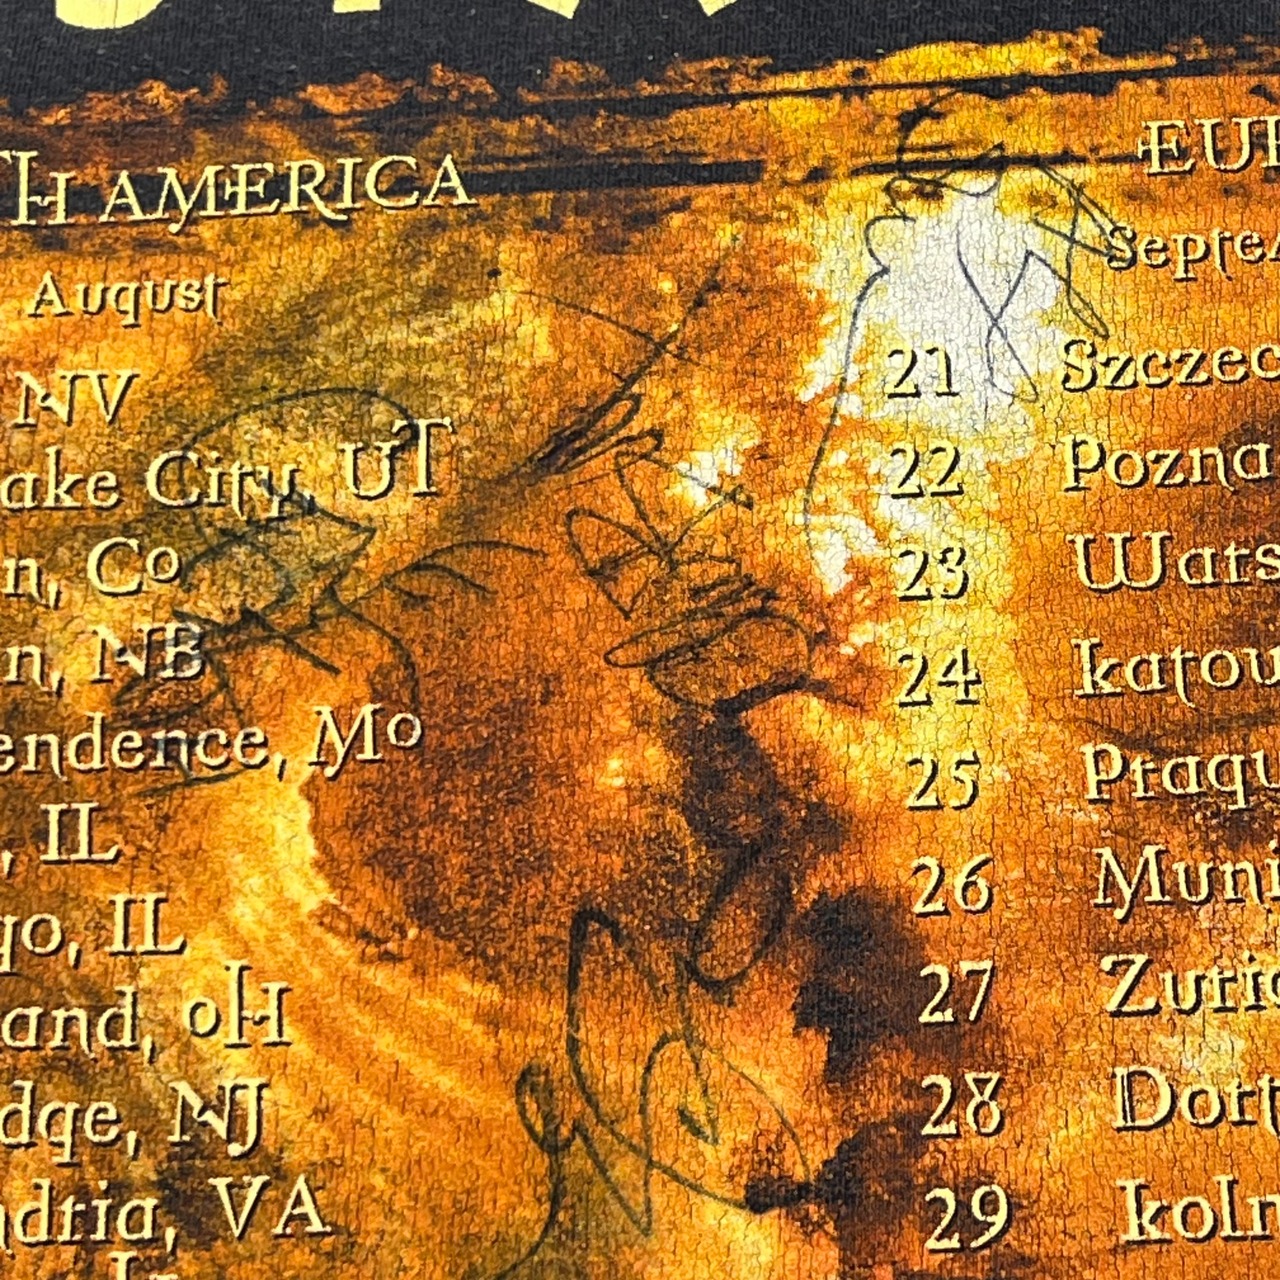 TH AMERICA
August
NV
ake City, UT
n, Co
n, NB
endence, Mo
, IL
go, IL
and, OH
dge, NJ
ndria, VA
EUR
Septem
21 Szczec
22 Pozna
23 Wars
24 Katow
25 Pragu
26 Muni
27 Zuric
28 Dort
29 Koln